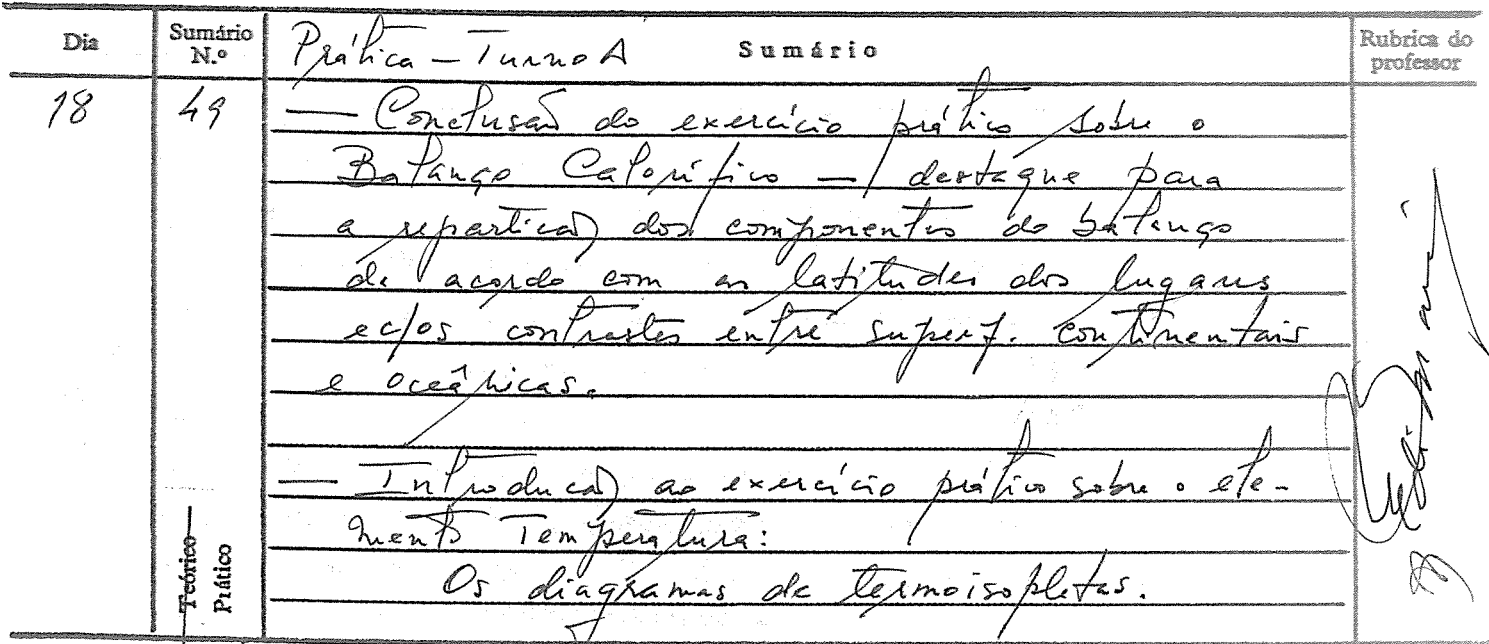 Dia Sumário N.º Prática – Turno A Sumário Rubrica do professor
18 49 — Conclusão do exercício prático sobre o
Balanço Calorífico – destaque para
a repartição dos componentes do balanço
de acordo com as latitudes dos lugares
e c/os contrastes entre superf. continentais
e oceânicas.
— Introdução ao exercício prático sobre o ele-
mento Temperatura:
Os diagramas de termoisopletas.
Teórico
Prático